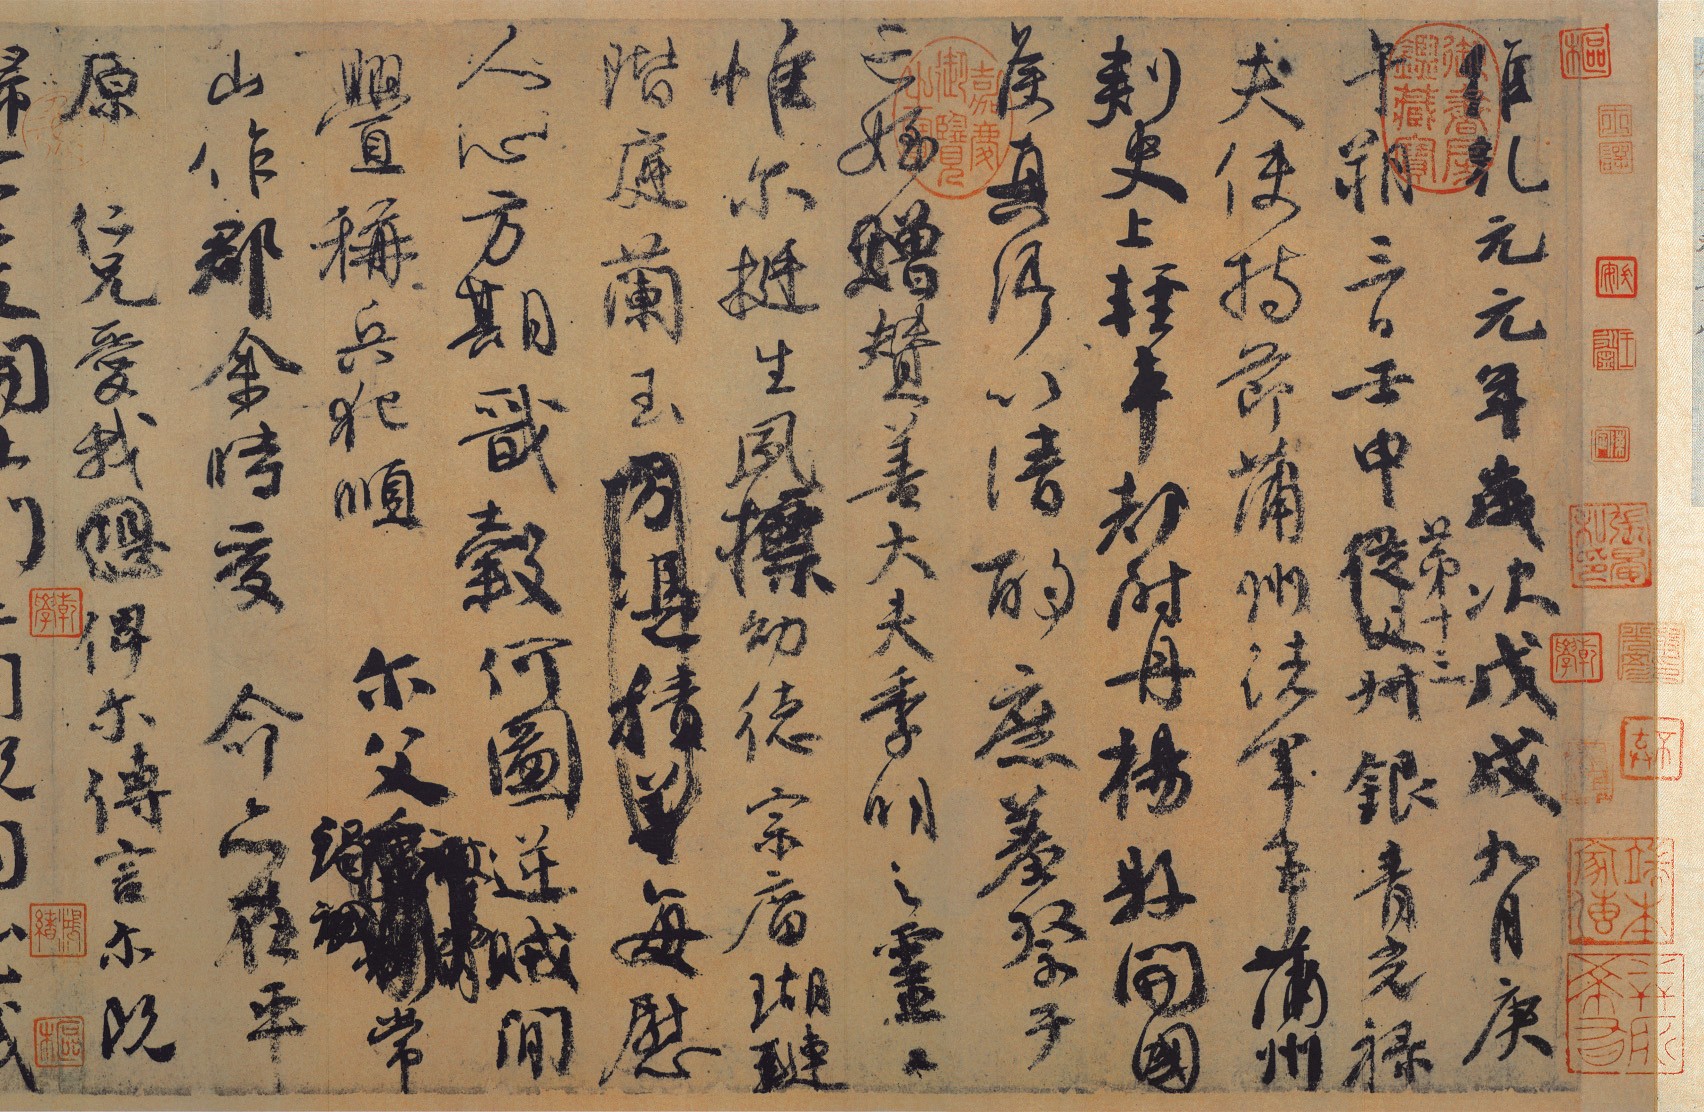 維乾元元年歲次戊戌九月庚
午朔三日壬申第十三從父銀青光祿
夫使持節蒲州諸軍事蒲州
刺史上輕車都尉丹楊縣開國
侯真卿以清酌庶羞祭于
亡姪贈贊善大夫季明之靈曰
惟爾挺生夙標幼德宗廟瑚璉
階庭蘭玉方憑積善每慰
人心方期戩穀何圖逆賊閒
釁稱兵犯順爾父竭誠常
山作郡余時受命亦在平
原仁兄愛我恐俾爾傳言爾既
歸止爰開土門土門既開凶威
嘉慶御覽之寶
御書房鑑藏寶